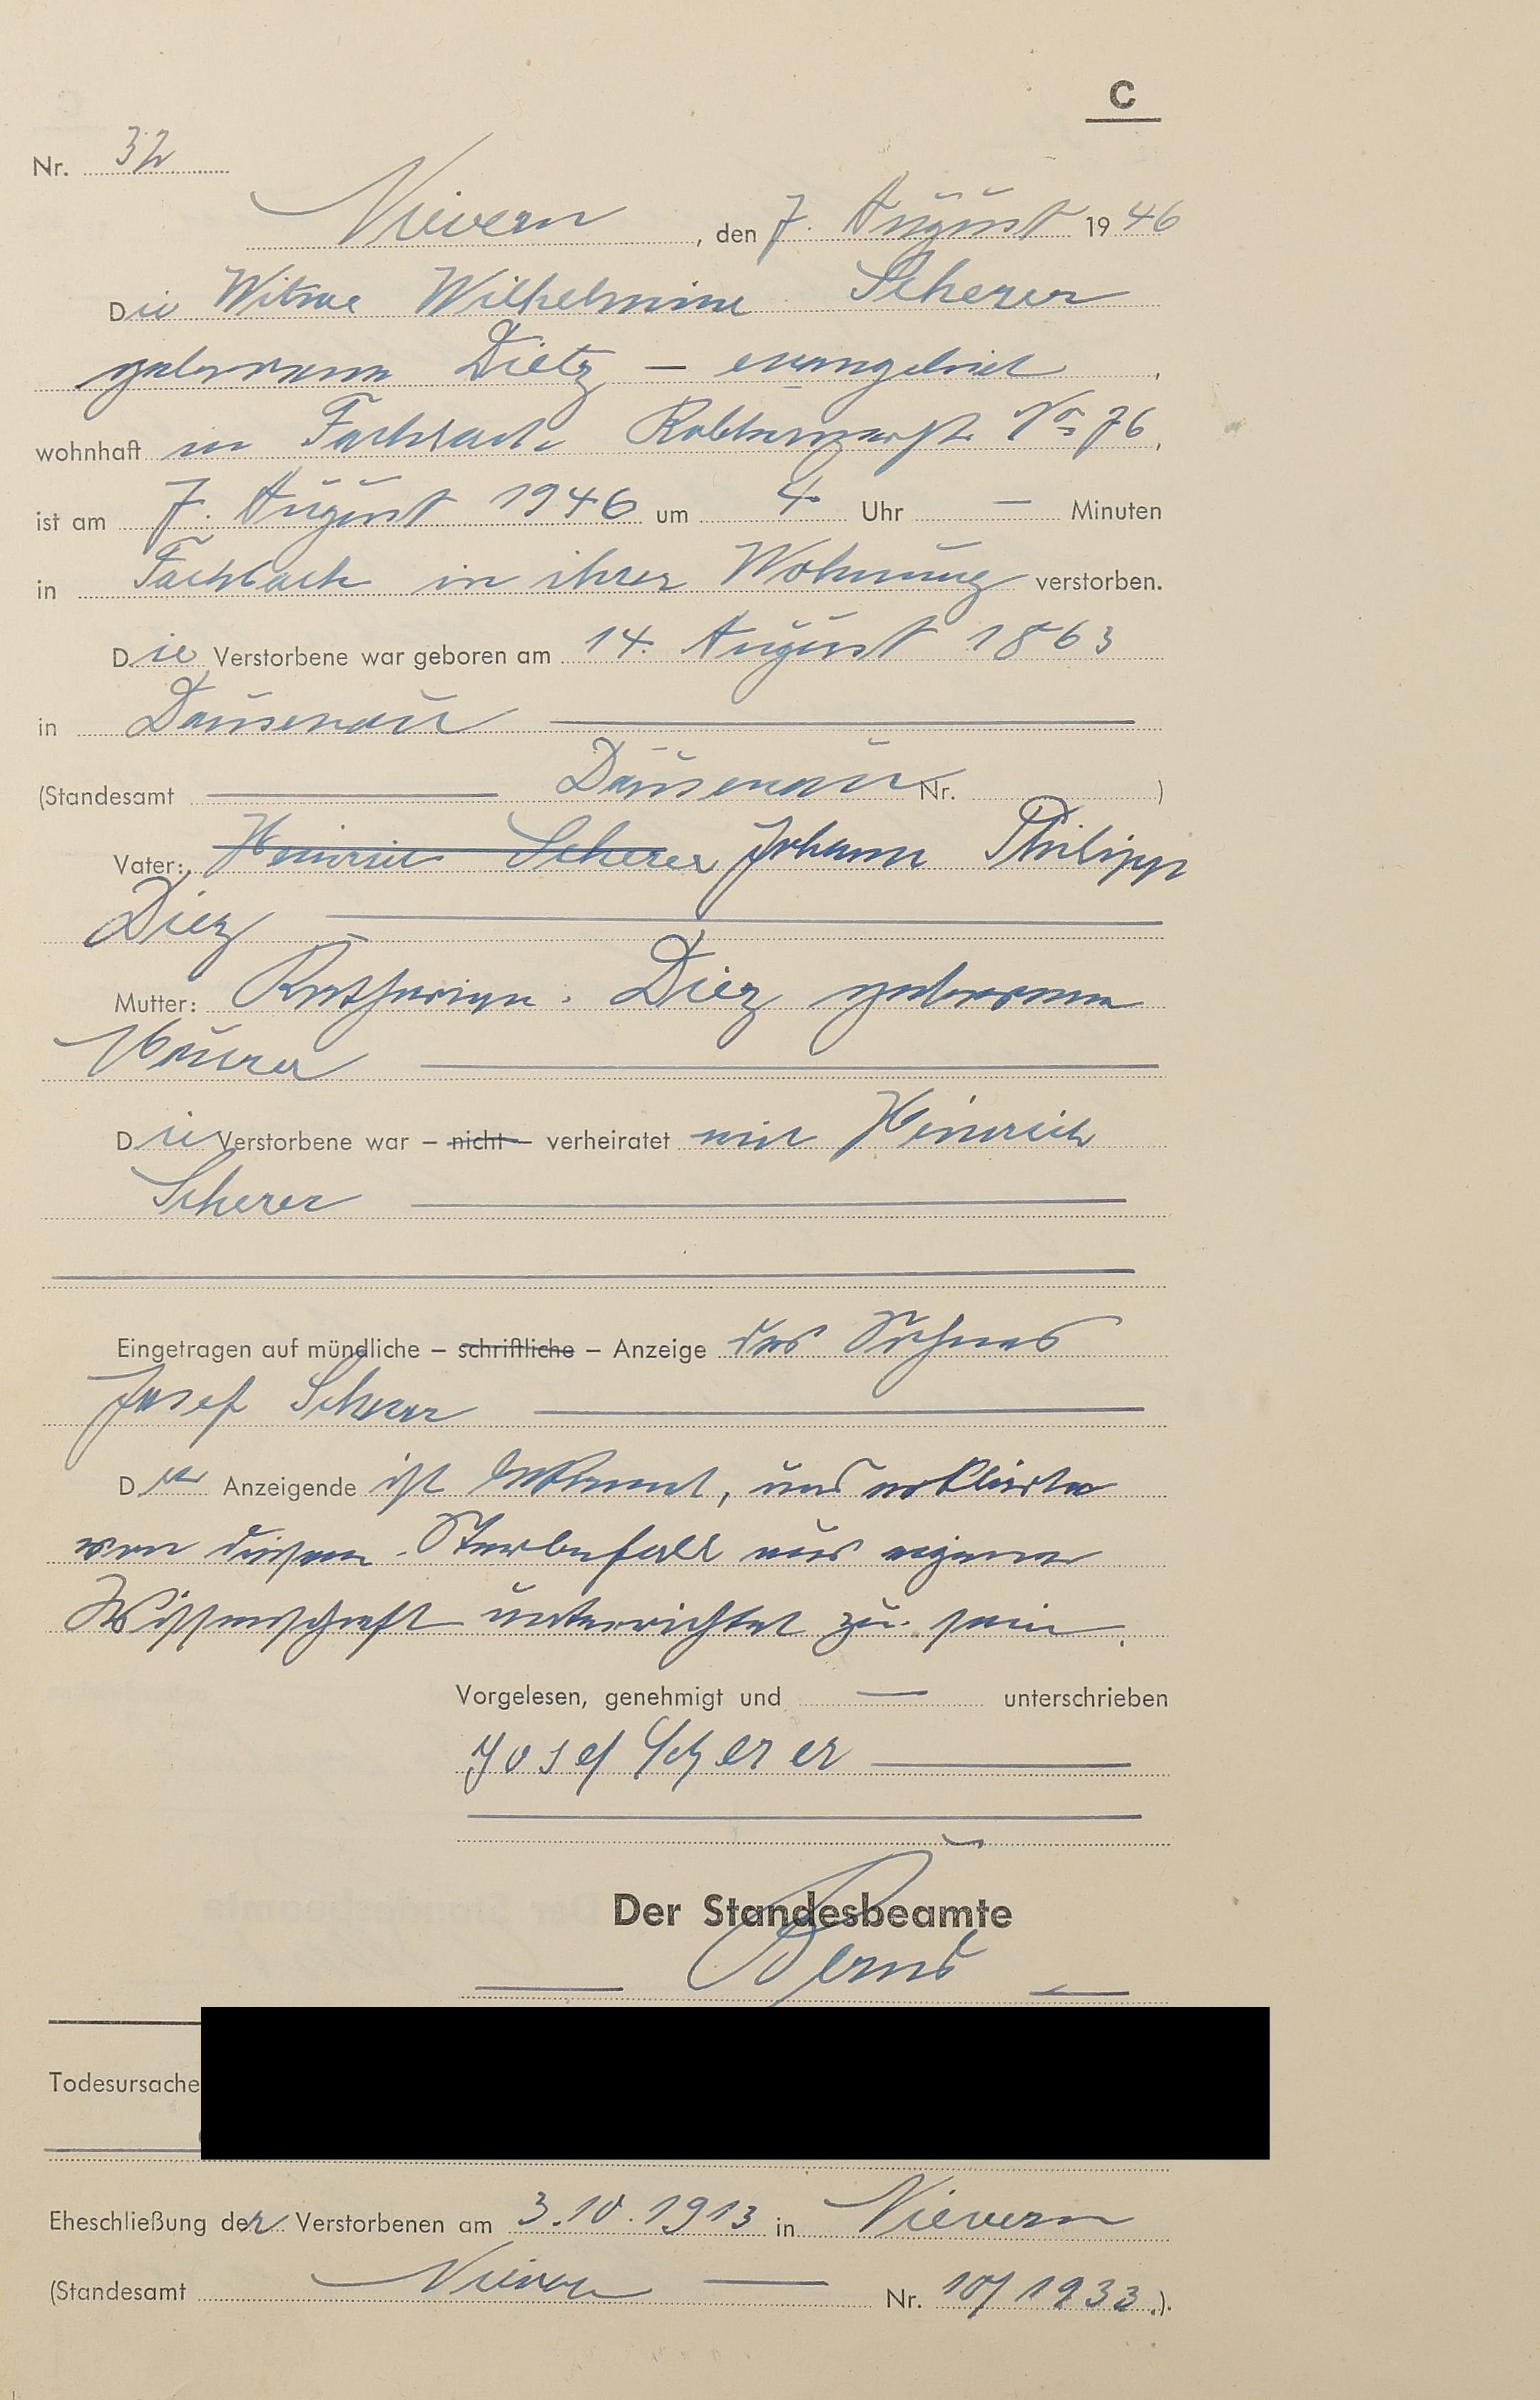 C
Nr. 32
Nievern, den 7. August 1946
Die Witwe Wilhelmine Scherer
geborene Dietz – evangelisch,
wohnhaft in Fachbach No 76,
ist am 7. August 1946 um 4 Uhr – Minuten
in Fachbach in ihrer Wohnung verstorben.
Die Verstorbene war geboren am 14. August 1863
in Dausenau
(Standesamt Dausenau Nr. )
Vater: Heinrich Scherer Johann Philipp
Diez
Mutter: Katharina Diez geborene
Die Verstorbene war – nicht – verheiratet mit Heinrich
Scherer
Eingetragen auf mündliche – schriftliche – Anzeige des Sohnes
Josef Scherer
Der Anzeigende ist bekannt, und erklärte
von diesem Sterbefall aus eigener
Wissenschaft unterrichtet zu sein.
Vorgelesen, genehmigt und – unterschrieben
Josef Scherer
Der Standesbeamte
Todesursache
Eheschließung der Verstorbenen am 3.10.1913 in Nievern
(Standesamt Nievern Nr. 10/1933.).